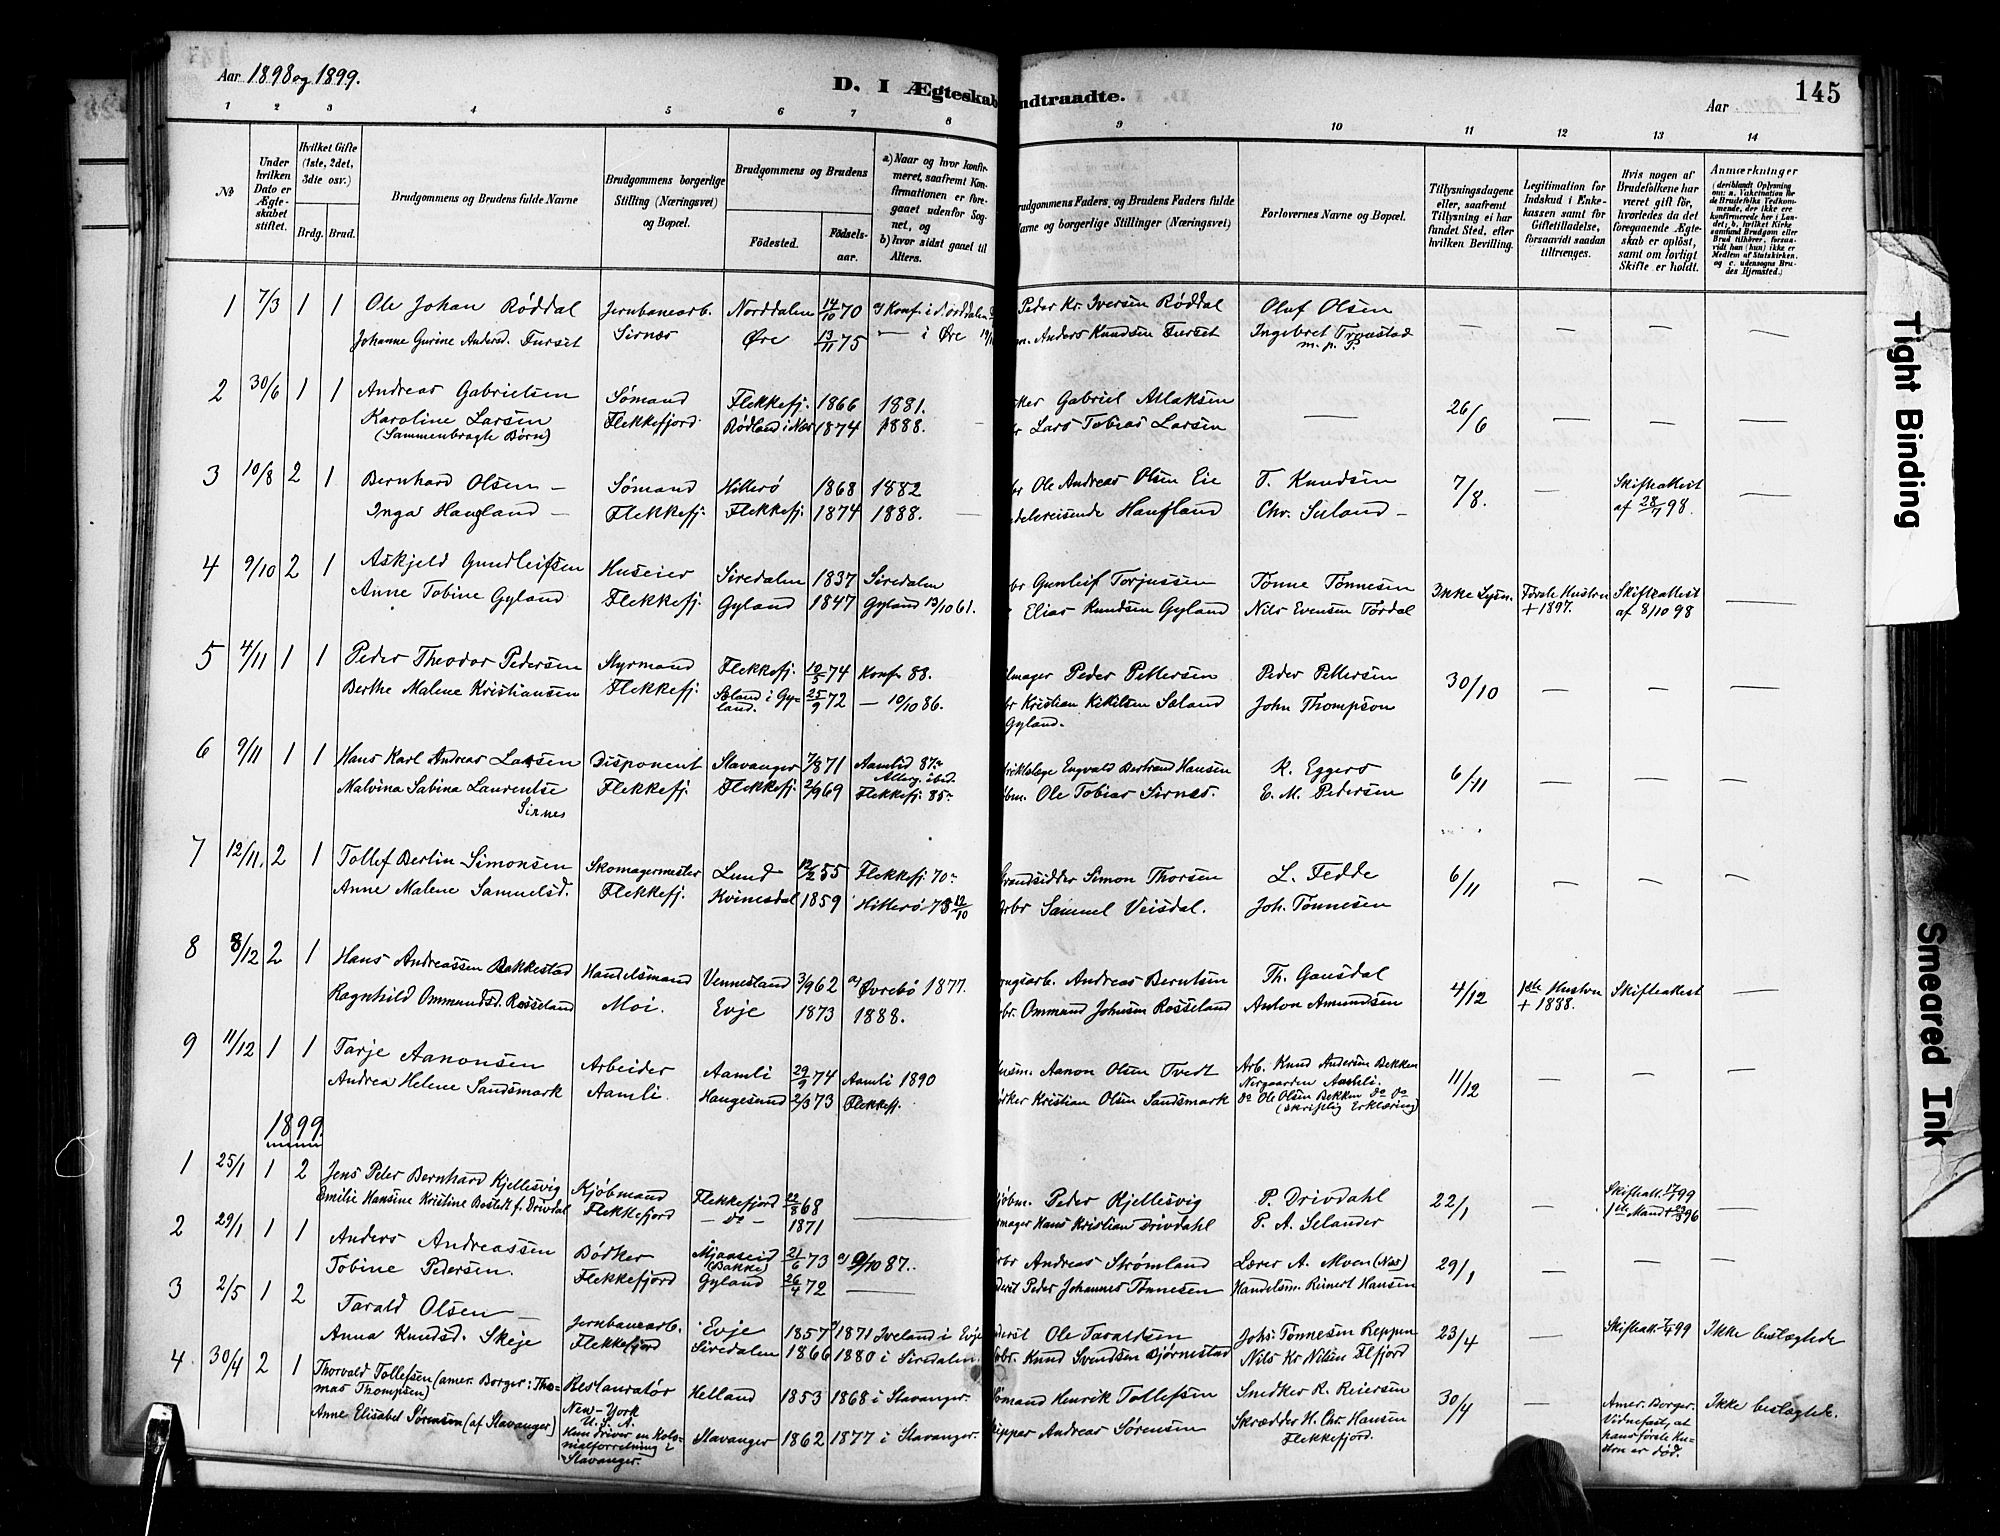 Aar 1898 og 1899.
D. I Ægteskab Indtraadte.
145
Aar
1 2 3 4 5 6 7 8 9 10 11 12 13 14
No
Under hvilken Dato er Ægteskabet stiftet.
Hvilket Gifte (1ste, 2det, 3die osv.)
Brdg. Brud.
Brudgommens og Brudens fulde Navne
Brudgommens borgerlige Stilling (Næringsvei) og Bopæl.
Brudgommens og Brudens
Fødested.
Fødselsaar.
a) Naar og hvor konfirmeret, saafremt Konfirmationen er foregaaet udenfor Sognet, og
b) hvor sidst gaaet til Alters.
Brudgommens Faders og Brudens Faders fulde Navne og borgerlige Stillinger (Næringsvei)
Forlovernes Navne og Bopæl.
Tillysningsdagene eller, saafremt Tillysning ei har fundet Sted, efter hvilken Bevilling.
Legitimation for Indskud i Enkekassen samt for Giftetilladelse, forsaavidt saadan tiltrænges.
Hvis nogen af Brudefolkene har været gift før, hvorledes da det foregaaende Ægteskab er opløst, samt om lovligt Skifte er holdt.
Anmærkninger
1 7/3 1 1 Ole Johan Røddal Jernbanearb. Norddalen 14/10 70 a) Konf. i Norddalen Peder Kr. Iversen Røddal Oluf Olsen
Johanne Gurine Andersd. Furset Sirnæs Øre 13/11 75 — i Øre Anders Knudsen Furset Ingebret Tronstad — — — —
m. p. P.
2 30/6 1 1 Andreas Gabrielsen Sømand Flekkefj. 1866 1881. Gabriel Atlaksen
Karoline Larsen Flekkefjord. Rødland i Nes 1874 1888. — Lars Tobias Larsen — 26/6 — — —
(Sammenbragte Børn)
3 10/8 2 1 Bernhard Olsen — Sømand Hitterø 1868 1882 Ole Andreas Olsen Eie T. Knudsen 7/8. — Skifteattest —
Inga Haugland — Flekkefj. Flekkefj. 1874 1888. — Haugland Chr. Suland — af 28/7 98.
4 9/10 2 1 Askjeld Gundleifsen Huseier Siredalen 1837 Siredalen Gunleif Torjussen Tønne Tønnesen Ikke Lysn. Første Hustru Skifteattest
Anne Tobine Gyland Flekkefj. Gyland 1847 Gyland 13/10 61. Elias Knudsen Gyland Nils Evensen Tørdal + 1897. af 8/10 98 —
5 4/11 1 1 Peder Theodor Pedersen Styrmand Flekkefj. 12/5 74 Konf. 88. Peder Pettersen Peder Pettersen 30/10 — — —
Berthe Malene Kristiansen Flekkefj. Sæland i Gyland. 25/9 72 — 10/10 86. Kristian Kittilsen Sæland John Thompson
Gyland.
6 9/11 1 1 Hans Karl Andreas Larsen Disponent Stavanger 7/8 71 Aamlid 87 Engvald Bertrand Hansen R. Eggers 6/11 — — —
Malvina Sabina Laurentse Flekkefj. Flekkefj. 2/9 69 Flekkefj. 85 Ole Tobias Sirnæs. E. M. Pedersen
Sirnes
7 12/11. 2 1 Tollef Berlin Simonsen Skomagermester Lund 12/2 55 Flekkefj. 70 Strandsidder Simon Thorsen L. Fedde 6/11 — — —
Anne Malene Samuelsd. Flekkefj. Kvinesdal 1859 Hitterø 75 12/10 Samuel Veisdal. Joh. Tønnesen
8 8/12 2 1 Hans Andreassen Bakkestad Handelsmand Vennesland 3/9 62 a) Øvrebø 1877. Andreas Berntsen Th. Gausdal 4/12 1ste Hustru Skifteattest —
Ragnhild Ommundsd. Rosseland Moi. Evje 1873 1888. Ommund Johnsen Rosseland Anton Amundsen + 1888.
9 11/12 1 1 Tarje Aanonsen Arbeider Aamli 29/9 74 Aamli 1890 Aanon Olsen Tvedt Arb. Knud Andersen Bekken 11/12 — — —
Andrea Helene Sandsmark Aamli. Haugesund 2/3 73 Flekkefj. Kristian Olsen Sandsmark Do Ole Olsen Bekken Do Do
(Skriftlig Erklæring)
1899
1 25/1 1 2 Jens Peter Bernhard Kjellesvig Kjøbmand Flekkefjord 22/5 68 Peder Kjellesvig P. Drivdahl 22/1 —
Emilie Hansine Kristine Bostedt f. Drivdal Flekkefjord — Do — 1871 — Hans Kristian Drivdahl P. A. Selander 1ste Mand + 96 —
2 29/1 1 1 Anders Andreassen Bødker Mjaaseid (Bakke) 21/6 73 a) 9/10 87. Andreas Strømland Lærer A. Moen (Nes) 29/1 — — —
Tobine Pedersen. Flekkefjord Gyland 26/4 72 — Peder Johannes Tønnesen Handelsm. Reinert Hansen
3 2/5 1 2 Tarald Olsen — Jernbanearb. Evje 1857 1871 Iveland i Evje Ole Taraldsen Johs. Tønnesen Reppen 23/4 — Skifteatt. 99 Ikke beslægtede
Anna Knudsd. Skeje Flekkefjord Siredalen 1866 1880 i Siredalen. Knud Svendsen Bjørnestad Nils Kr Nilsen Flfjord
4 30/4 2 1 Thorvald Tollefsen (amer. Borger: Thomas Thompsen) Restauratør Helland 1853 1868 i Stavanger. Sømand Henrik Tollefsen Snedker R. Reiersen 30/4 — Amer. Borger. Ikke beslægtede.
New-York
U. S. A.
Anne Elisabet Sørensen (af Stavanger) Hun driver en Kolonialforretning i Stavanger. Stavanger 1862 1877 i Stavanger. Skipper Andreas Sørensen Skrædder H. Chr. Hansen Flekkefjord. Vidnefast, at hans første Hustru er død.
Tight Binding
Smeared Ink